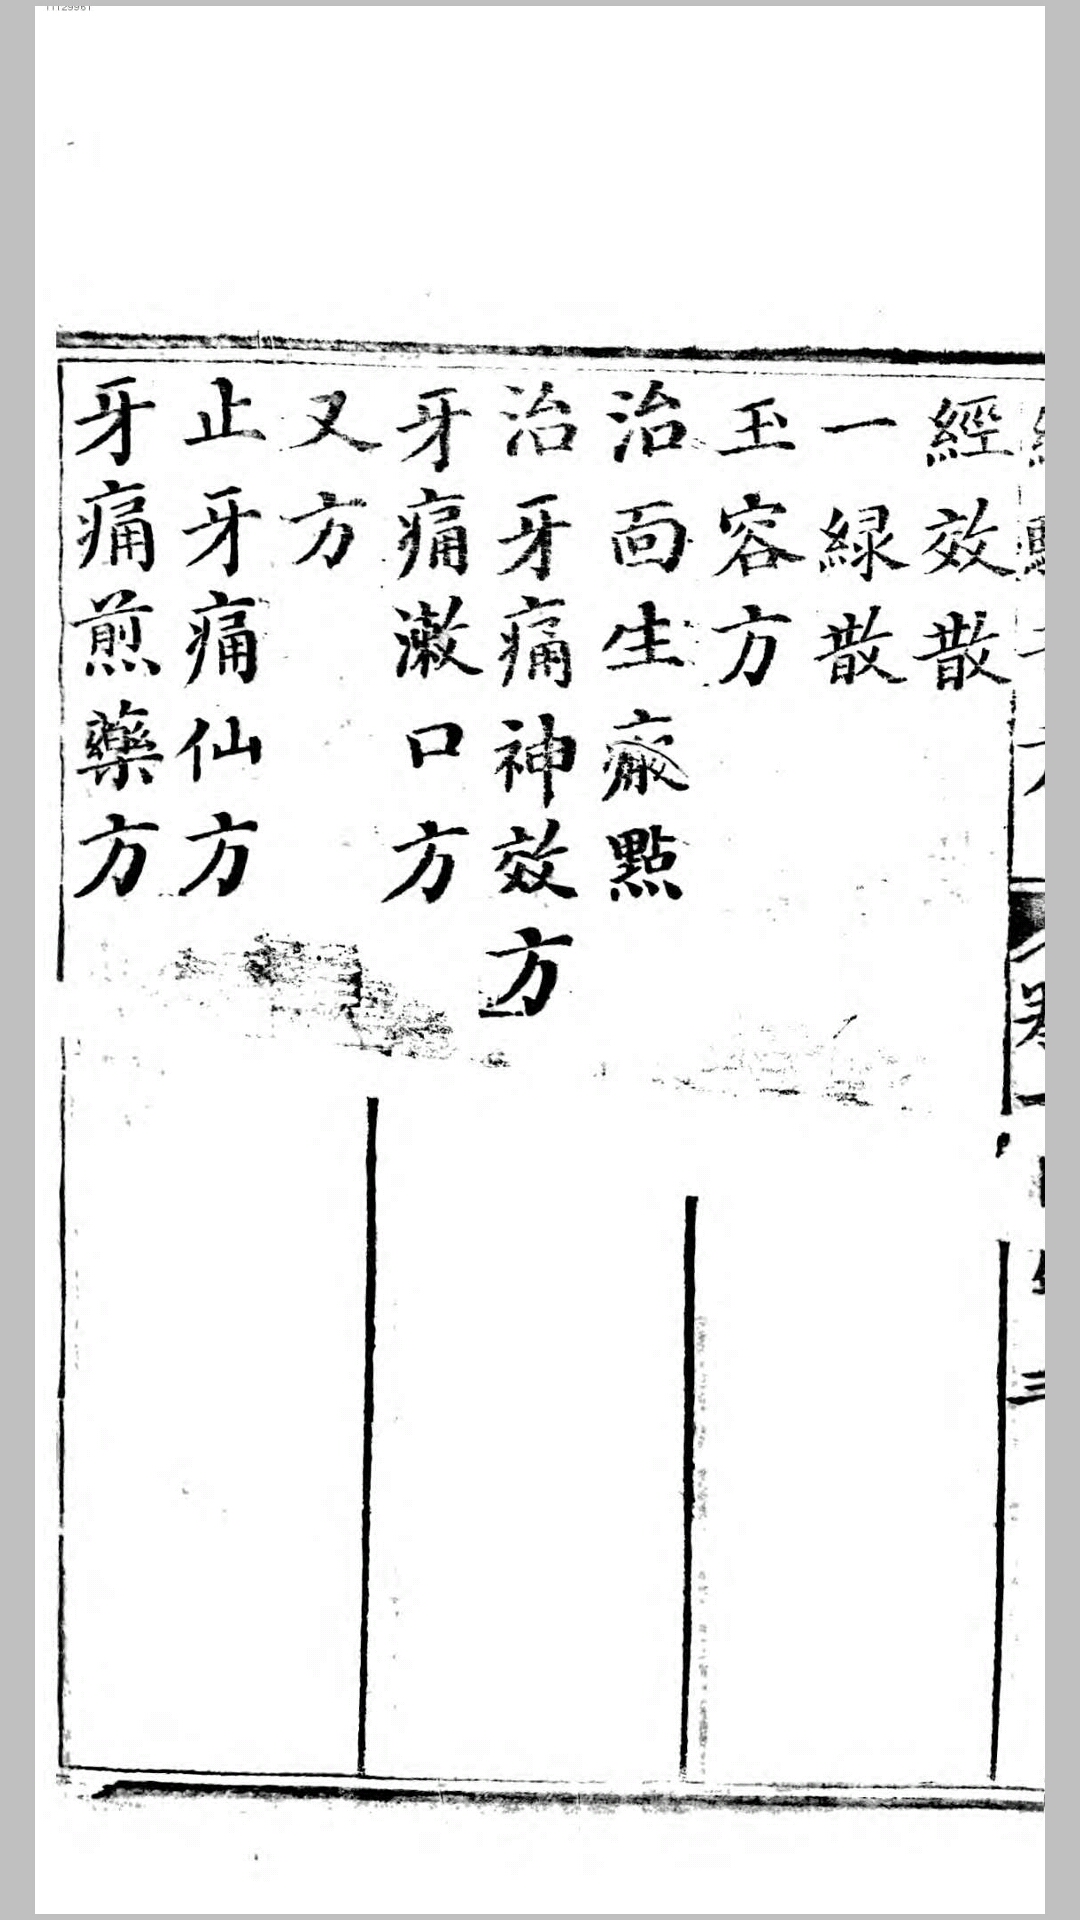 經效散
一緑散
玉容方
治面生瘢點
治牙痛神效方
牙痛漱口方
又方
止牙痛仙方
牙痛煎藥方